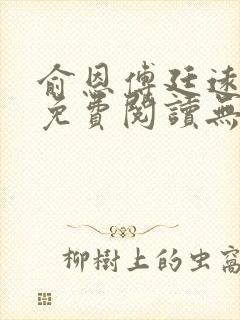 俞恩傅廷遠
免費閱讀無
柳樹上的虫窩